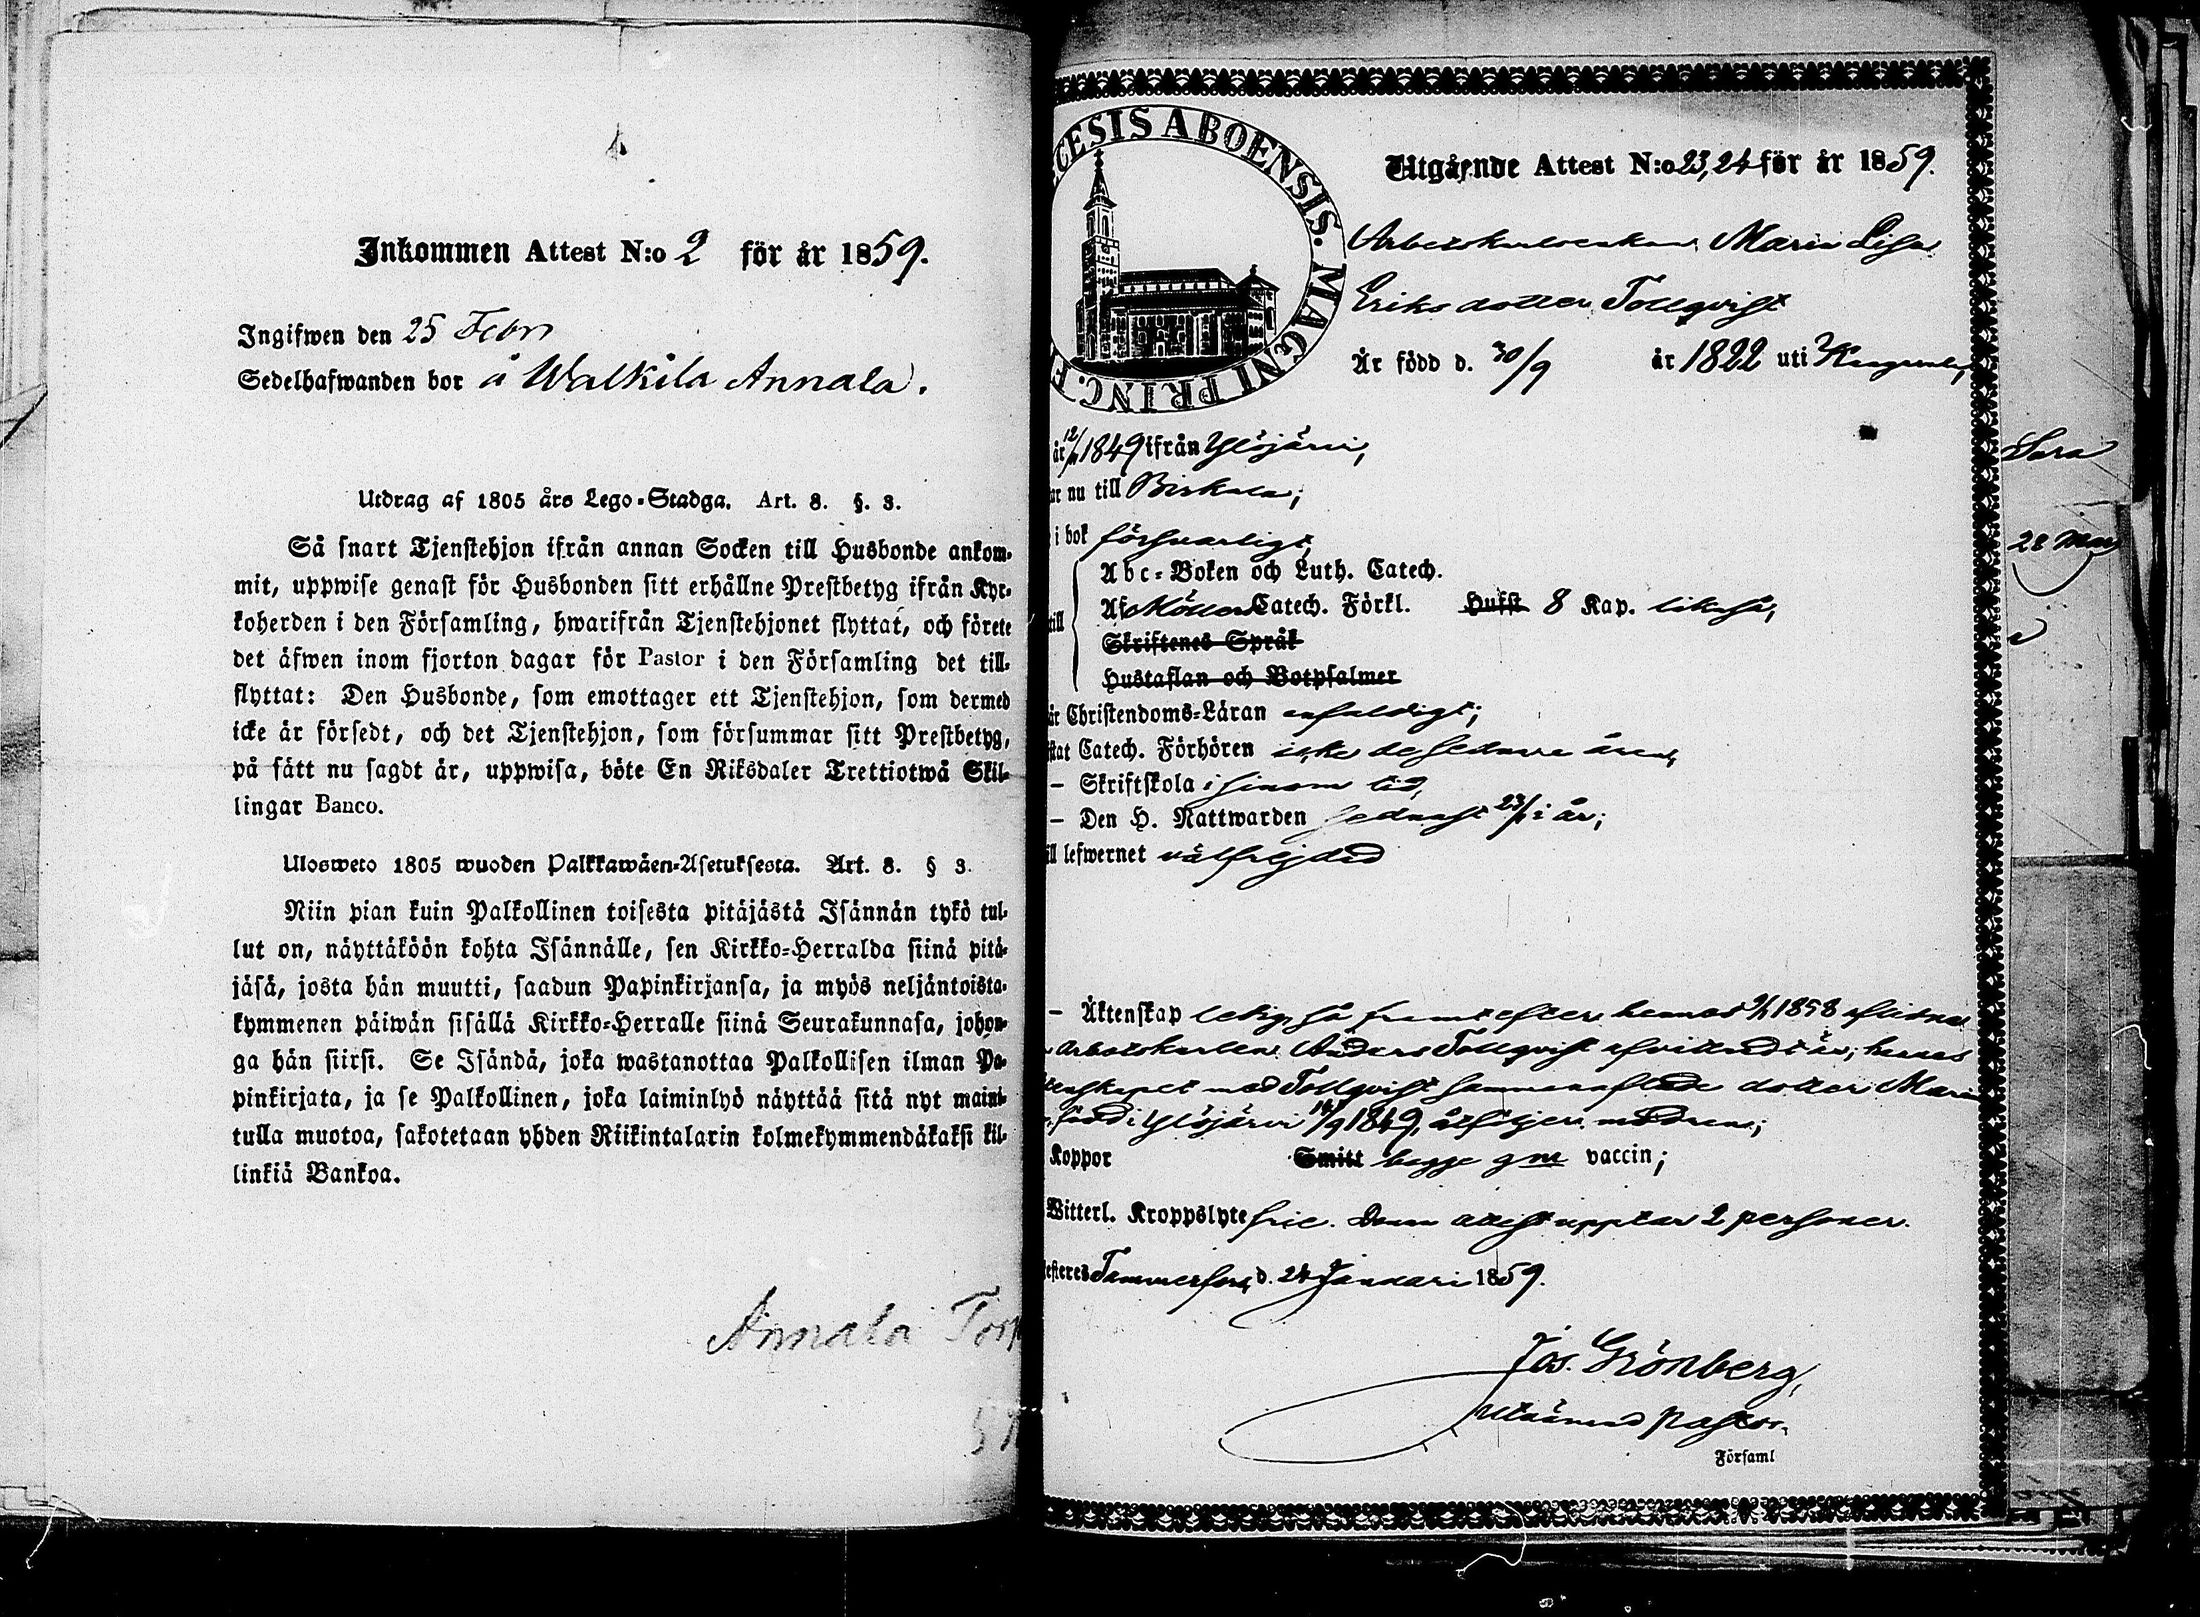 Inkommen Attest N:o 2 för år 1859.
Ingifwen den 25 Febr
Sedelhafwanden bor å Walkila Annala.
Utdrag af 1805 års Lego-Stadga. Art. 8. §. 3.
Så snart Tjenstehjon ifrån annan Socken till Husbonde ankom-
mit, uppwise genast för Husbonden sitt erhållne Prestbetyg ifrån Kyr-
koherden i den Församling, hwarifrån Tjenstehjonet flyttat, och förete
det äfwen inom fjorton dagar för Pastor i den Församling det till-
flyttat: Den Husbonde, som emottager ett Tjenstehjon, som dermed
icke är försedt, och det Tjenstehjon, som försummar sitt Prestbetyg,
på sätt nu sagdt är, uppwisa, böte En Riksdaler Trettiotwå Skil-
lingar Banco.
Ulosweto 1805 wuoden Palkkawäen-Asetuksesta. Art. 8. § 3.
Niin pian kuin Palkollinen toisesta pitäjästä Isännän tykö tul-
lut on, näyttäköön kohta Isännälle, sen Kirkko-Herralda siinä pitä-
jäsä, josta hän muutti, saadun Papinkirjansa, ja myös neljäntoista-
kymmenen päiwän sisällä Kirkko-Herralle siinä Seurakunnasa, johon-
ga hän siirsi. Se Isändä, joka wastanottaa Palkollisen ilman Pa-
pinkirjata, ja se Palkollinen, joka laiminlyö näyttää sitä nyt maini-
tulla muotoa, sakotetaan yhden Riikintalarin kolmekymmendäkaksi kil-
linkiä Bankoa.
Annala
CESIS ABOENSIS. MAGNI PRINC. F
Utgående Attest N:o 23, 24 för år 1859.
Maria Lisa
Eriksdotter Tollqvist
Är född d. 30/9 år 1822 uti
år 12/11 1849 ifrån Ylöjärvi,
nu till Birkala;
i bok försvarligt,
Abc-Boken och Luth. Catech.
till Af Möllers Catech. Förkl. Hufst 8 Kap. likaså;
Skriftenes Språk
Hustaflan och Botpsalmer
Christendoms-Läran enfaldigt;
Catech. Förhören icke de sednare åren,
– Skriftskola i sinom tid,
– Den H. Nattwarden sednast 23/1 i år;
till lefwernet välfrejdad
– Äktenskap ledig så framt efter hennes 1858 aflidne
Anders Tollqvist afvittradt är; hennes
med Tollqvist sammanaflade dotter Maria
född i Ylöjärvi 1849, åtföljer modren;
Koppor Smitt begge gm vaccin;
Witterl. Kroppslyte frie. Denna attest upptar 2 personer.
Tammerfors, d. 24 Januari 1859.
Jos. Grönberg,
Utnämnd Pastor.
Församl
Sara
28